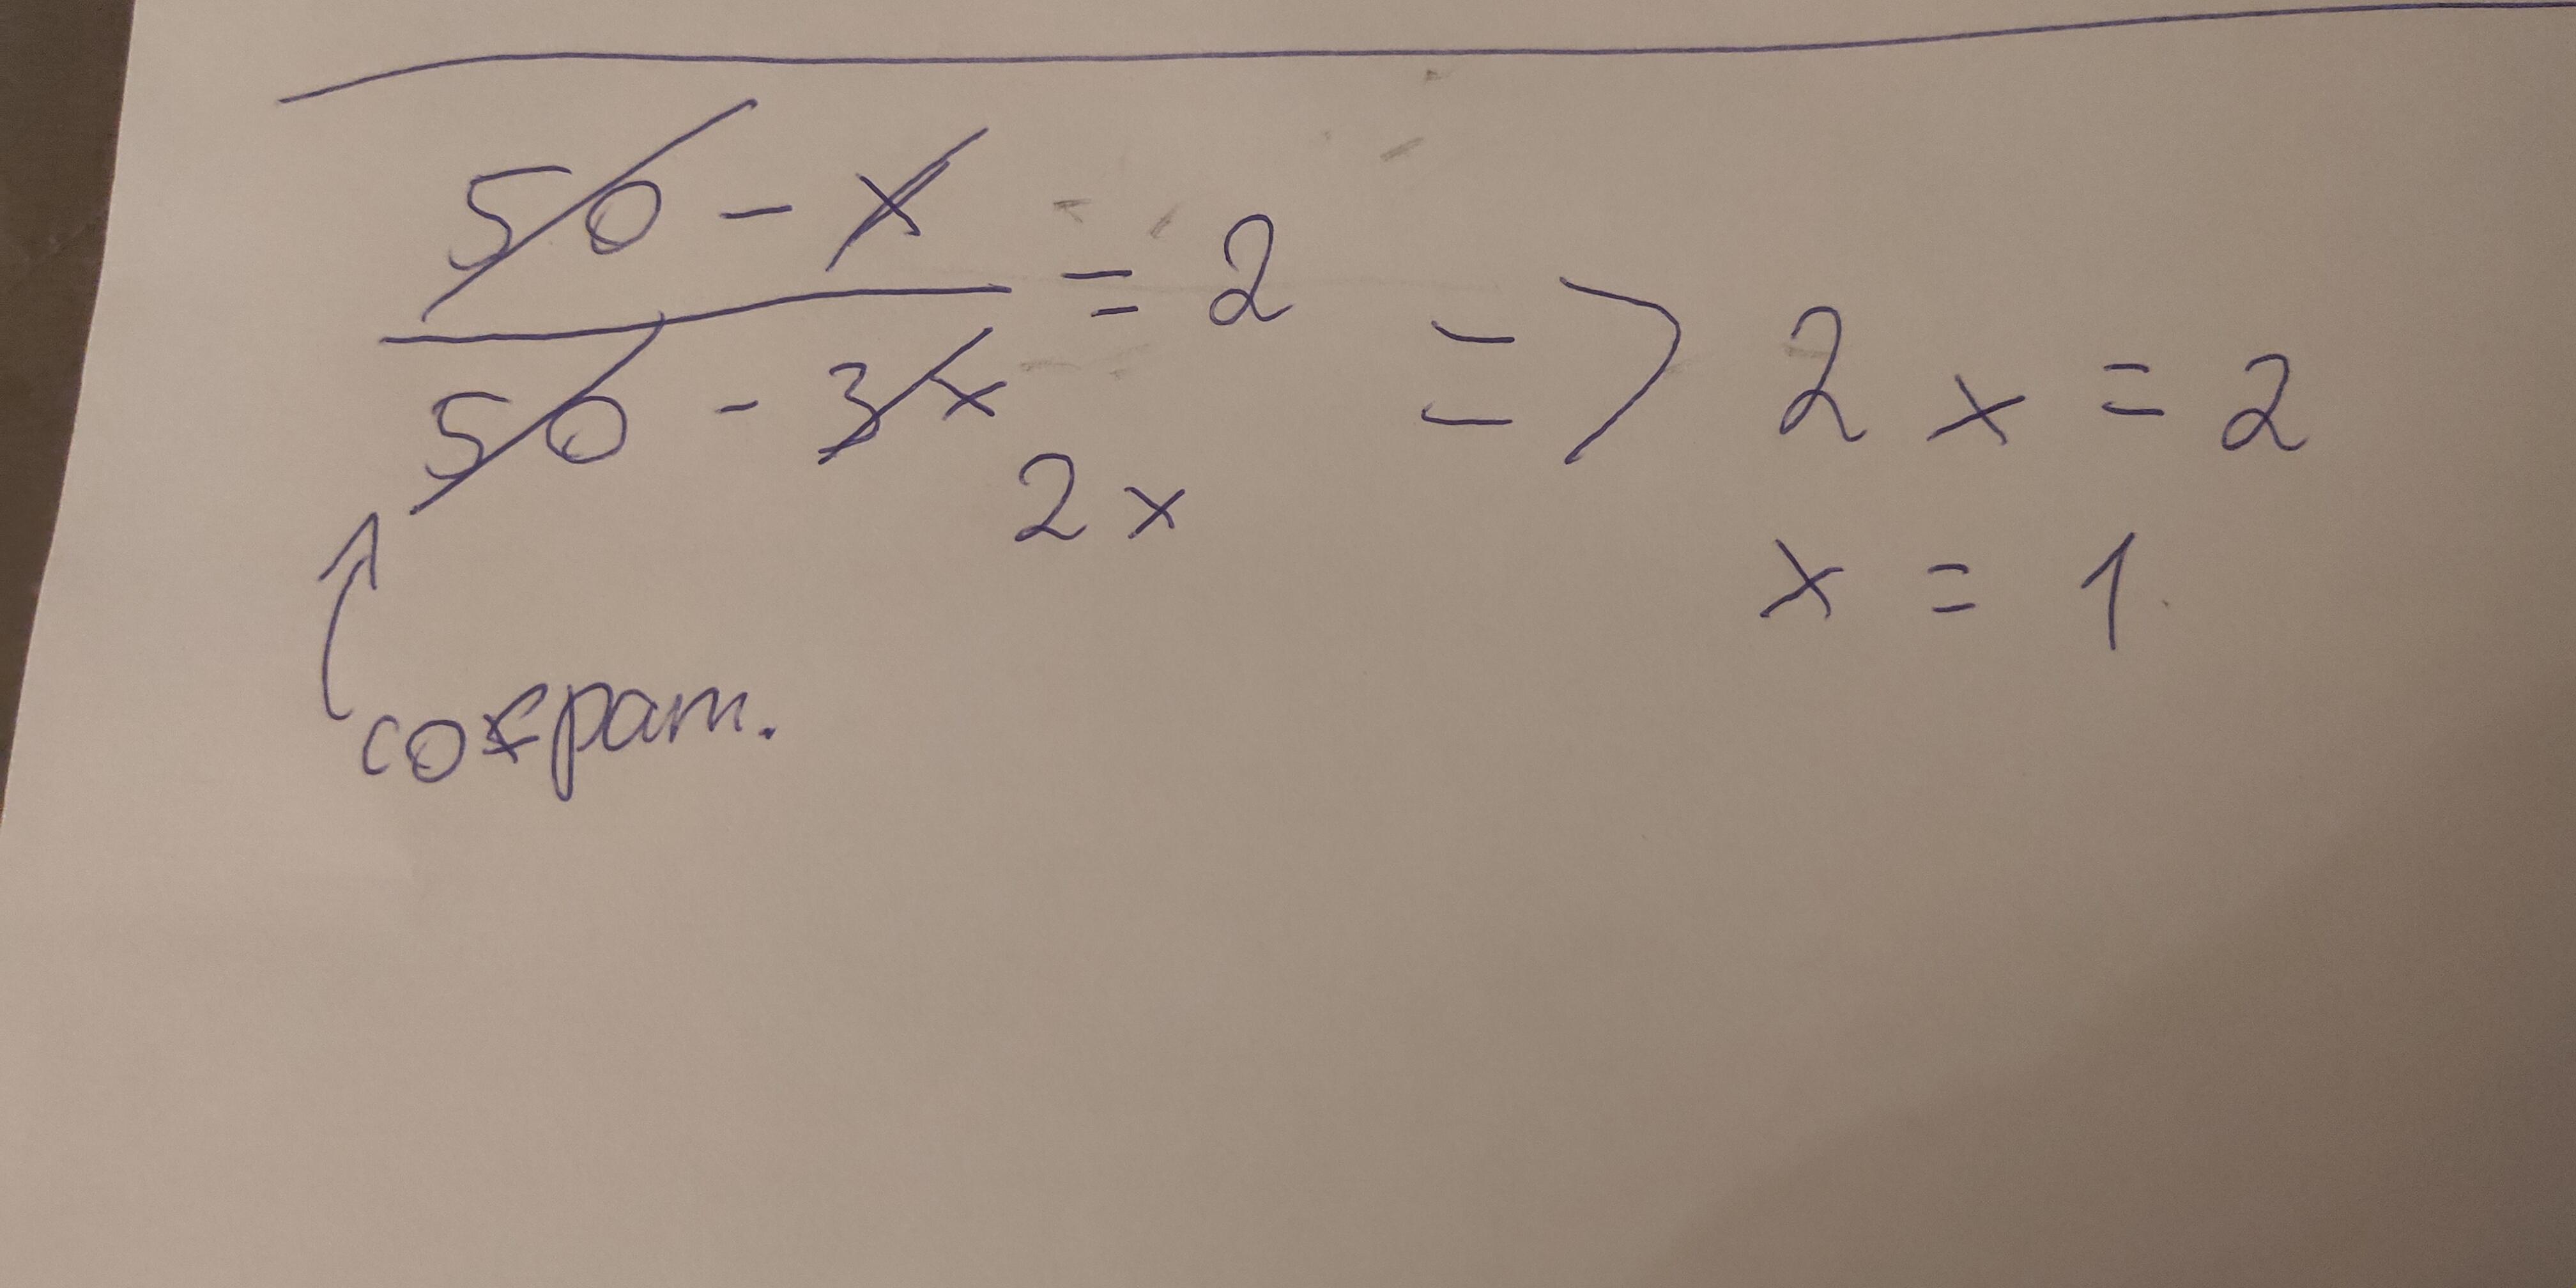 50 - x
= 2 => 2x = 2
50 - 3x
2x
x = 1
сократ.